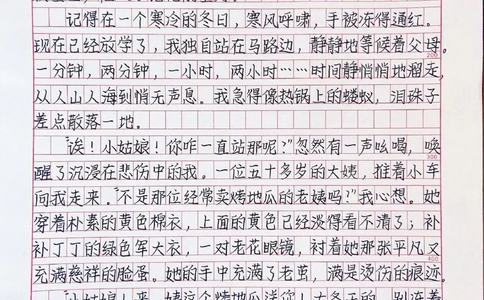 记得在一个寒冷的冬日，寒风呼啸，手被冻得通红。
现在已经放学了，我独自站在马路边，静静地等候着父母。
一分钟，两分钟，一小时，两小时……时间静悄悄地溜走，
从人山人海到悄无声息。我急得像热锅上的蝼蚁，泪珠子
差点散落一地。
“诶！小姑娘！你咋一直站那呢？”忽然有一声吆喝，唤
醒了沉浸在悲伤中的我。一位五十多岁的大姨，推着小车
向我走来。“不是那位经常卖烤地瓜的老姨吗？”我心想。她
穿着朴素的黄色棉衣，上面的黄色已经淡得看不清了；补
补丁丁的绿色军大衣，一对老花眼镜，衬着她那张平凡又
充满慈祥的脸蛋。她的手中充满了老茧，满是烫伤的痕迹。